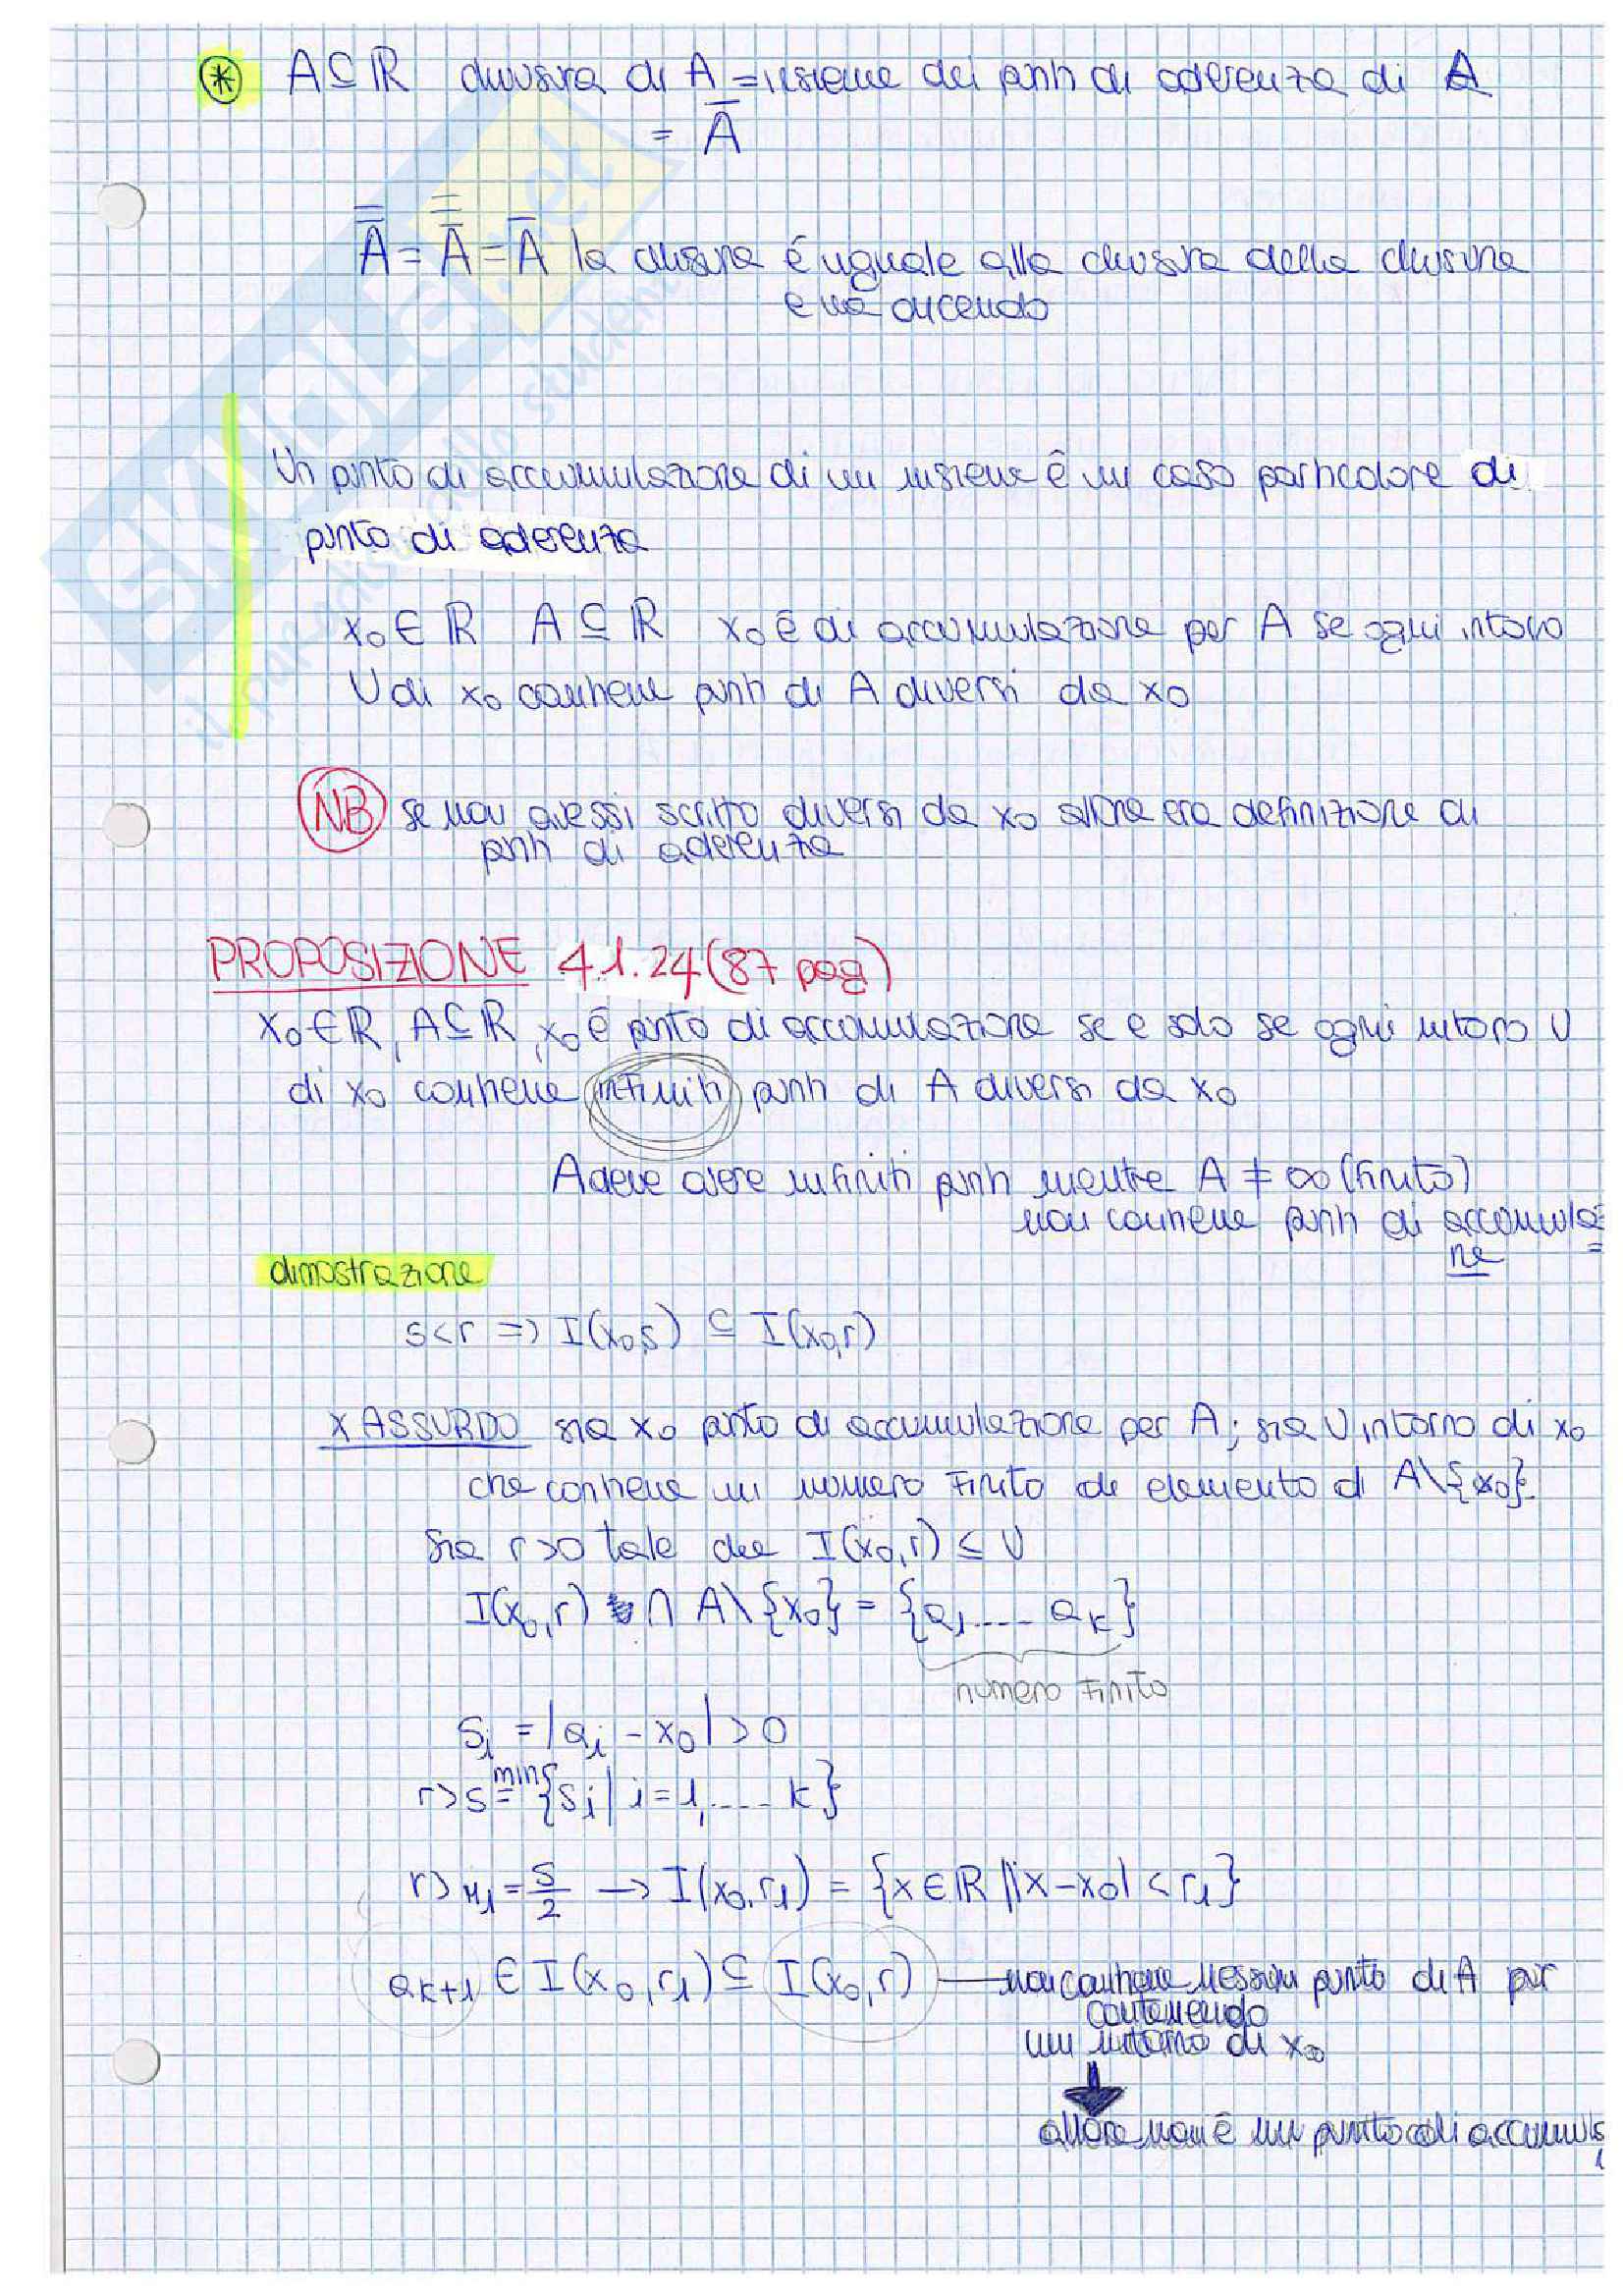 * A ⊆ ℝ chiusura di A = insieme dei punti di aderenza di A
= A̅
A̿̅ = A̿̅ = A̅ la chiusura è uguale alla chiusura della chiusura
e via dicendo
Un punto di accumulazione di un insieme è un caso particolare di
punto di aderenza
x₀ ∈ ℝ A ⊆ ℝ x₀ è di accumulazione per A se ogni intorno
U di x₀ contiene punti di A diversi da x₀
NB se non avessi scritto diversi da x₀ allora era definizione di
punti di aderenza
PROPOSIZIONE 4.1.24 (87 pag)
x₀ ∈ ℝ, A ⊆ ℝ, x₀ è punto di accumulazione se e solo se ogni intorno U
di x₀ contiene infiniti punti di A diversi da x₀
A deve avere infiniti punti mentre A ≠ ∞ (finito)
non contiene punti di accumula=
ne
dimostrazione
s<r => I(x₀,s) ⊆ I(x₀,r)
x ASSURDO sia x₀ punto di accumulazione per A; sia U intorno di x₀
che contiene un numero finito di elemento di A\{x₀}
Sia r>0 tale che I(x₀,r) ⊆ U
I(x₀,r) ∩ A\{x₀} = {a₁.... aₖ}
numero finito
sᵢ = |aᵢ - x₀| > 0
r>s = min {sᵢ | i = 1,.... k}
r> r₁ = s/2 → I(x₀,r₁) = {x ∈ ℝ ||x-x₀| < r₁}
aₖ₊₁ ∈ I(x₀,r₁) ⊆ I(x₀,r) — non contiene nessun punto di A pur
contenendo
un intorno di x₀
allora non è un punto di accumula
1
SKUOLA.net
il paradiso dello studente